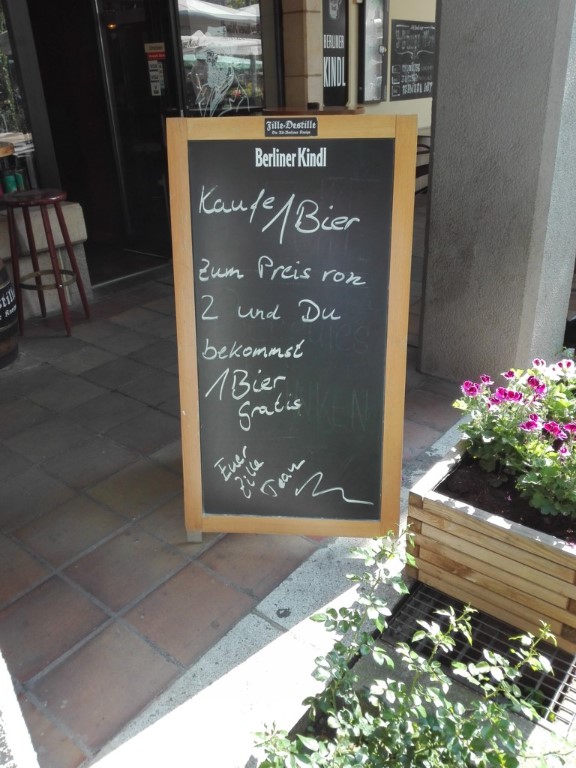 BERLINER
KINDL
Zille-Destille
Berliner Kindl
Kaufe 1 Bier
zum Preis von
2 und Du
bekommst
1 Bier
gratis
Euer
Zille
Team